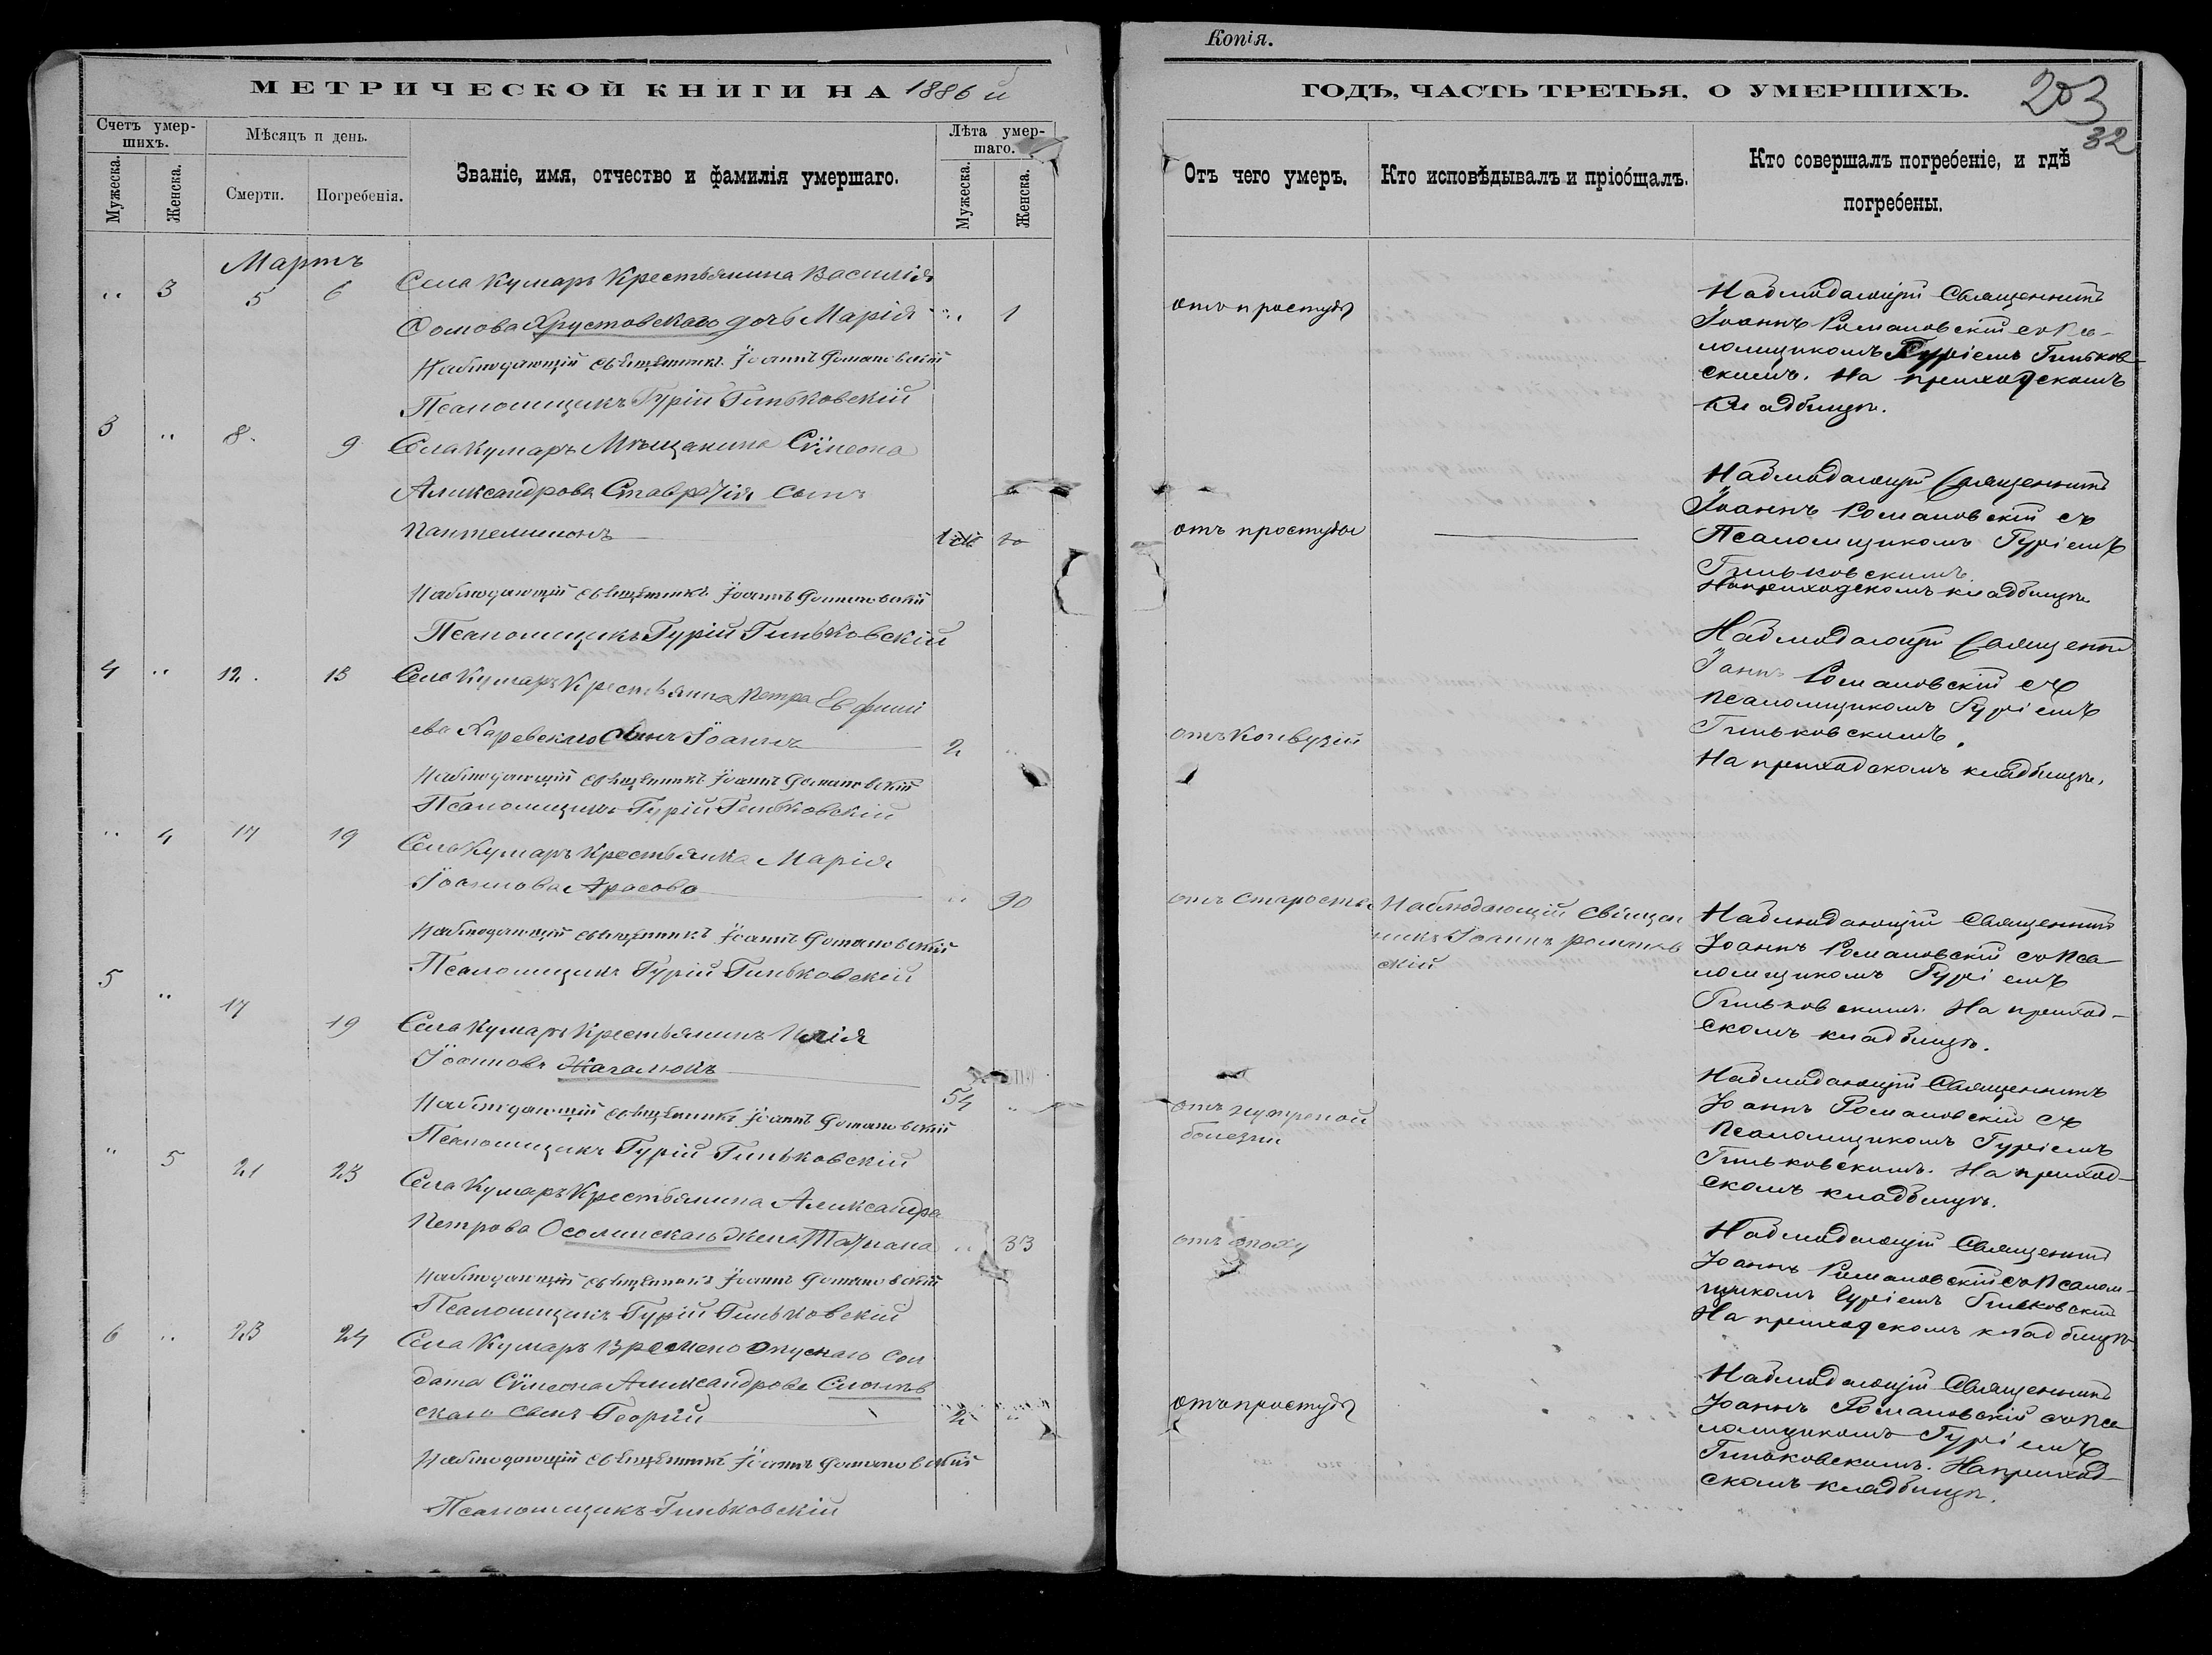 Копія.
МЕТРИЧЕСКОЙ КНИГИ НА 1886 й
ГОДЪ, ЧАСТЬ ТРЕТЬЯ, О УМЕРШИХЪ.
203
32
Счетъ умер-
шихъ.
Мужеска.
Женска.
Мѣсяцъ и день.
Смерти.
Погребенія.
Званіе, имя, отчество и фамилія умершаго.
Лѣта умер-
шаго.
Мужеска.
Женска.
Отъ чего умеръ.
Кто исповѣдывалъ и пріобщалъ.
Кто совершалъ погребеніе, и гдѣ
погребены.
Мартъ
" 3 5 6 Села Кумаръ Крестьянина Василія
Хрустовскаго дочь Марія " 1
Наблюдающій священникъ Іоаннъ Романовскій
Псаломщикъ Гурій Гиньковскій
отъ простуды
Наблюдающій Священникъ
Іоаннъ Романовскій съ Пса-
ломщикомъ Гуріемъ Гиньков-
скимъ. На приходскомъ
кладбищѣ.
3 " 8 9 Села Кумаръ Мѣщанина Сѵмеона
Александрова сынъ
Пантелимонъ
Наблюдающій священникъ Іоаннъ Романовскій
Псаломщикъ Гурій Гиньковскій
отъ простуды
Наблюдающій Священникъ
Іоаннъ Романовскій съ
Псаломщикомъ Гуріемъ
Гиньковскимъ.
На приходскомъ кладбищѣ
4 " 12 13 Села Кумаръ Крестьянина Петра Евфимі
ева Каревскаго сынъ Іоаннъ 2 "
Наблюдающій священникъ Іоаннъ Романовскій
Псаломщикъ Гурій Гиньковскій
отъ Конвузій
Наблюдающій Священни
Іаннъ Романовскій съ
Псаломщикомъ Гуріемъ
Гиньковскимъ.
На приходскомъ кладбищѣ.
" 4 17 19 Села Кумаръ Крестьянка Марія
Іоаннова Арасова " 90
Наблюдающій священникъ Іоаннъ Романовскій
Псаломщикъ Гурій Гиньковскій
отъ старости
Наблюдающій священ
никъ Іоаннъ Романов
скій
Наблюдающій Священникъ
Іоаннъ Романовскій съ Пса-
ломщикомъ Гуріемъ
Гиньковскимъ. На приход-
скомъ кладбищѣ.
5 " 17 19 Села Кумаръ Крестьянинъ Илія
Іоанновъ 54 "
Наблюдающій священникъ Іоаннъ Романовскій
Псаломщикъ Гурій Гиньковскій
отъ нутреной
болезни
Наблюдающій Священникъ
Іоаннъ Романовскій съ
Псаломщикомъ Гуріемъ
Гиньковскимъ. На приход-
скомъ кладбищѣ.
" 5 21 23 Села Кумаръ Крестьянина Александра
Петрова жена Татіана " 33
Наблюдающій священникъ Іоаннъ Романовскій
Псаломщикъ Гурій Гиньковскій
отъ
Наблюдающій Священникъ
Іоаннъ Романовскій съ Псалом-
щикомъ Гуріемъ Гиньковскій
На приходскомъ кладбищѣ
6 " 23 24 Села Кумаръ сол
дата Сѵмеона Александрова
скаго сынъ Георгій 2 "
Наблюдающій священникъ Іоаннъ Романовскій
Псаломщикъ Гиньковскій
отъ простуды
Наблюдающій Священникъ
Іоаннъ Романовскій съ Пса
ломщикомъ Гуріемъ
Гиньковскимъ. На приход-
скомъ кладбищѣ.